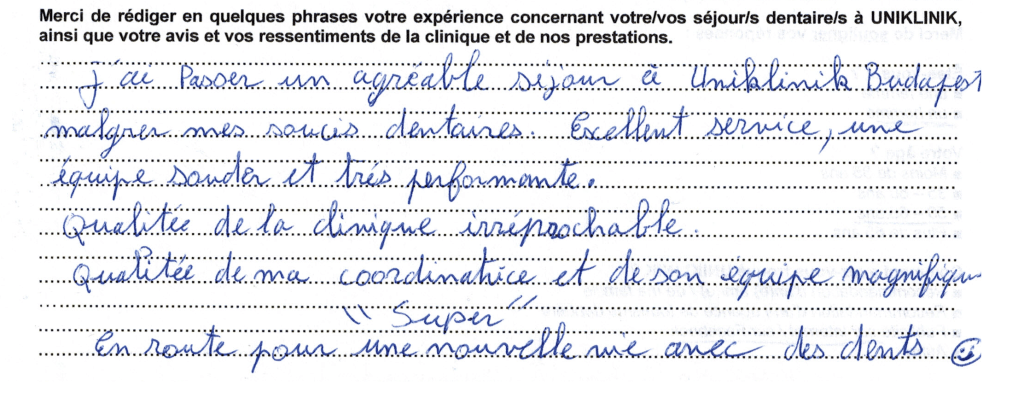 Merci de rédiger en quelques phrases votre expérience concernant votre/vos séjour/s dentaire/s à UNIKLINIK,
ainsi que votre avis et vos ressentiments de la clinique et de nos prestations.
J'ai Passer un agréable séjour à Uniklinik Budapest
malgrer mes soucis dentaires. Excellent service, une
équipe souder et très performante.
Qualitée de la clinique irréprochable.
Qualitée de ma coordinatrice et de son équipe magnifique
"Super"
En route pour une nouvelle vie avec des dents ☺